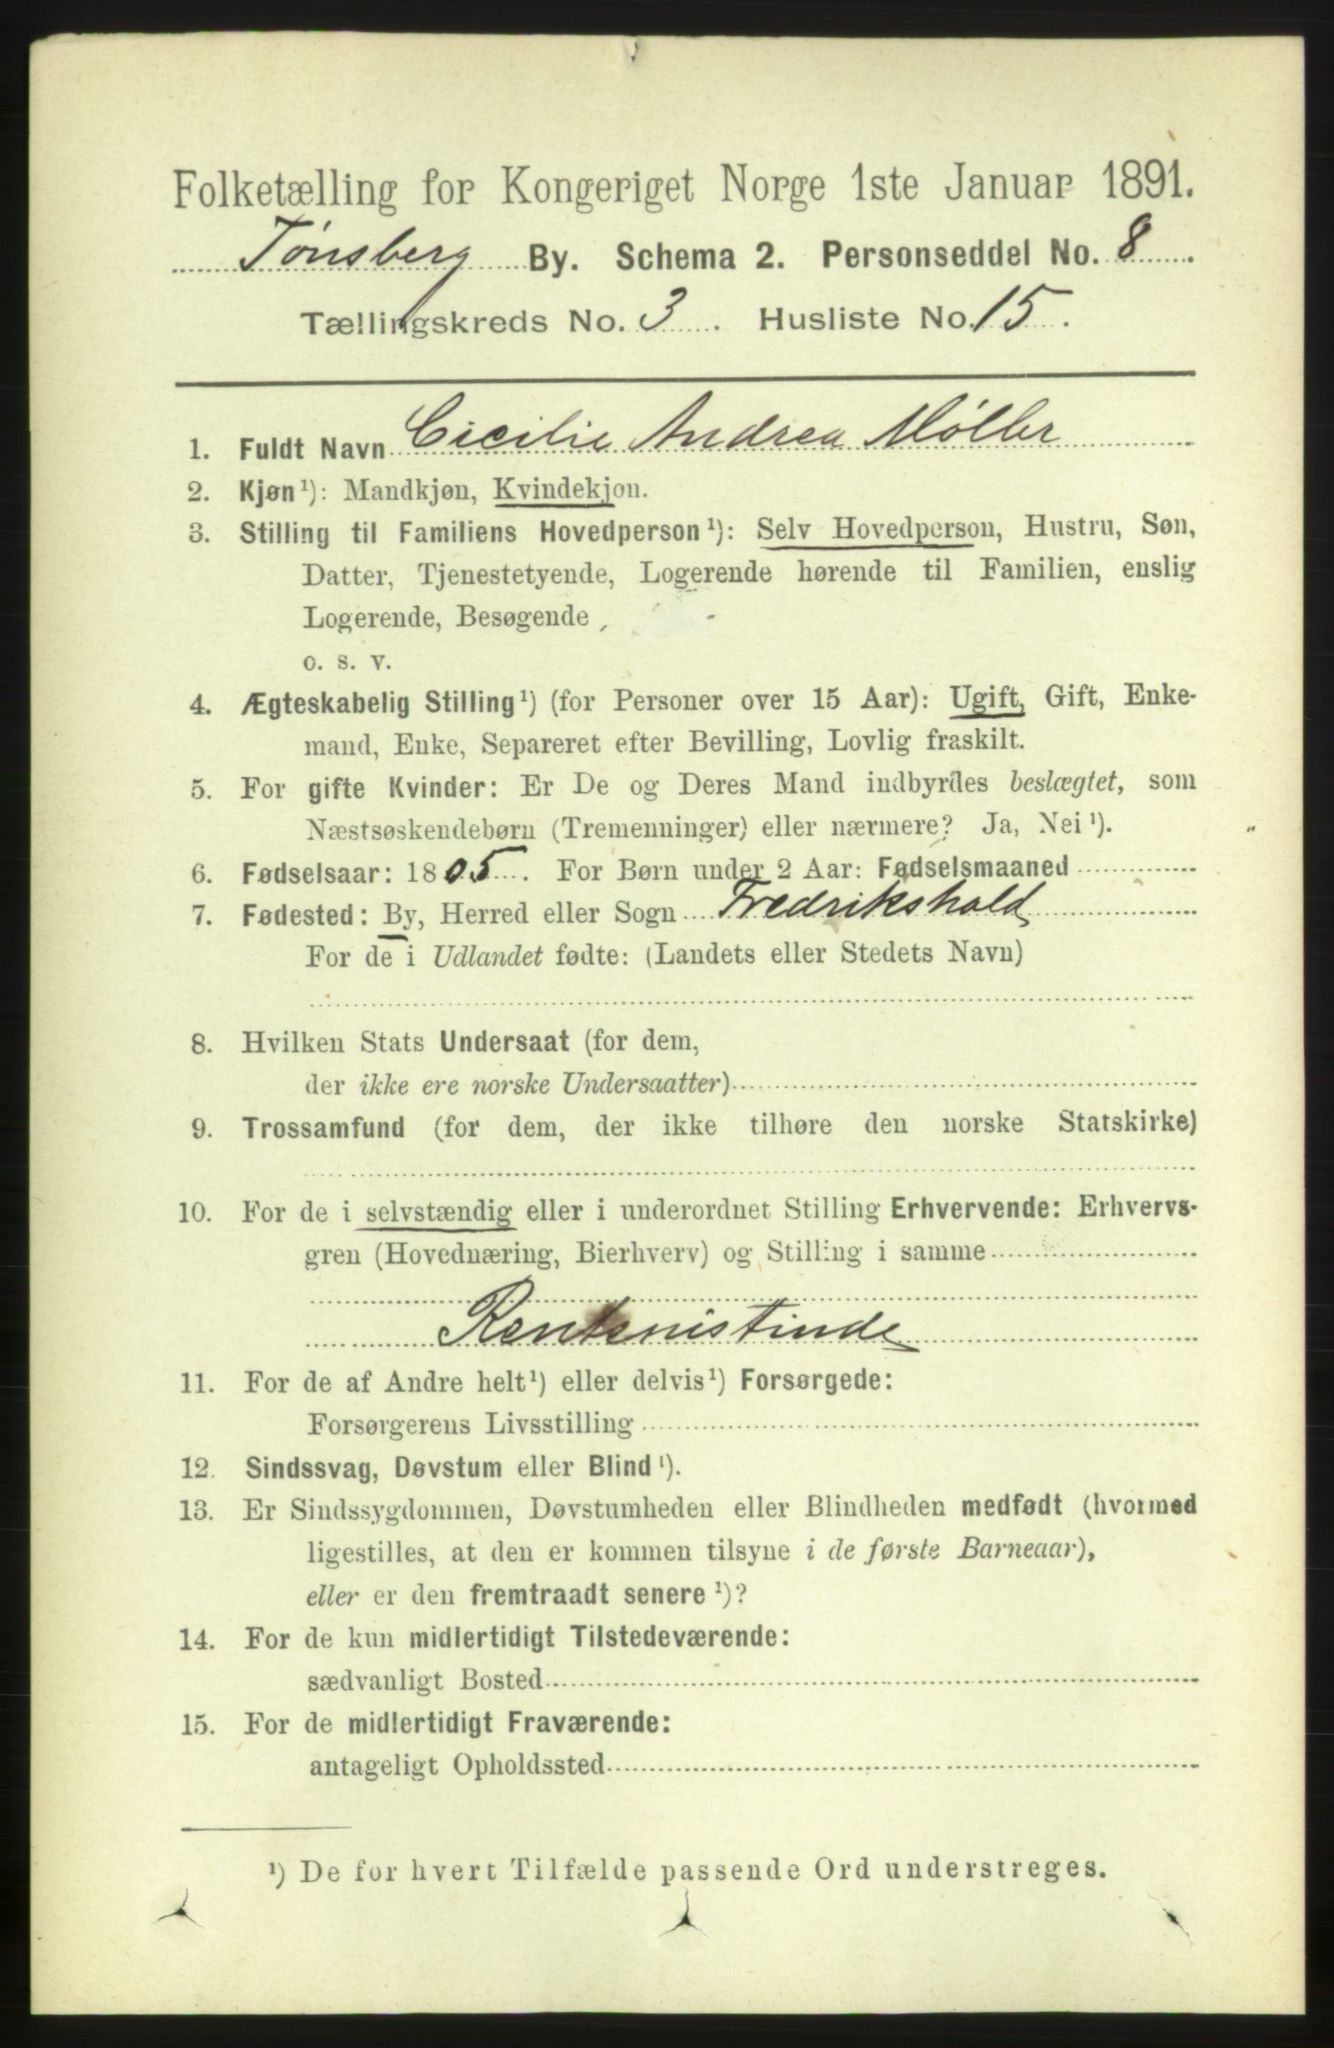 Folketælling for Kongeriget Norge 1ste Januar 1891.
Tønsberg By. Schema 2. Personseddel No. 8.
Tællingskreds No. 3. Husliste No. 15.
1. Fuldt Navn Cicilie Andrea Møller
2. Kjøn¹): Mandkjøn, Kvindekjøn.
3. Stilling til Familiens Hovedperson¹): Selv Hovedperson, Hustru, Søn,
Datter, Tjenestetyende, Logerende hørende til Familien, enslig
Logerende, Besøgende
o. s. v.
4. Ægteskabelig Stilling¹) (for Personer over 15 Aar): Ugift, Gift, Enke-
mand, Enke, Separeret efter Bevilling, Lovlig fraskilt.
5. For gifte Kvinder: Er De og Deres Mand indbyrdes beslægtet, som
Næstsøskendebørn (Tremenninger) eller nærmere? Ja, Nei¹).
6. Fødselsaar: 1805. For Børn under 2 Aar: Fødselsmaaned
7. Fødested: By, Herred eller Sogn Fredrikshald
For de i Udlandet fødte: (Landets eller Stedets Navn)
8. Hvilken Stats Undersaat (for dem,
der ikke ere norske Undersaatter)
9. Trossamfund (for dem, der ikke tilhøre den norske Statskirke)
10. For de i selvstændig eller i underordnet Stilling Erhvervende: Erhvervs-
gren (Hovednæring, Bierhverv) og Stilling i samme
Rentenistinde
11. For de af Andre helt¹) eller delvis¹) Forsørgede:
Forsørgerens Livsstilling
12. Sindssvag, Døvstum eller Blind¹).
13. Er Sindssygdommen, Døvstumheden eller Blindheden medfødt (hvormed
ligestilles, at den er kommen tilsyne i de første Barneaar),
eller er den fremtraadt senere¹)?
14. For de kun midlertidigt Tilstedeværende:
sædvanligt Bosted
15. For de midlertidigt Fraværende:
antageligt Opholdssted
¹) De for hvert Tilfælde passende Ord understreges.